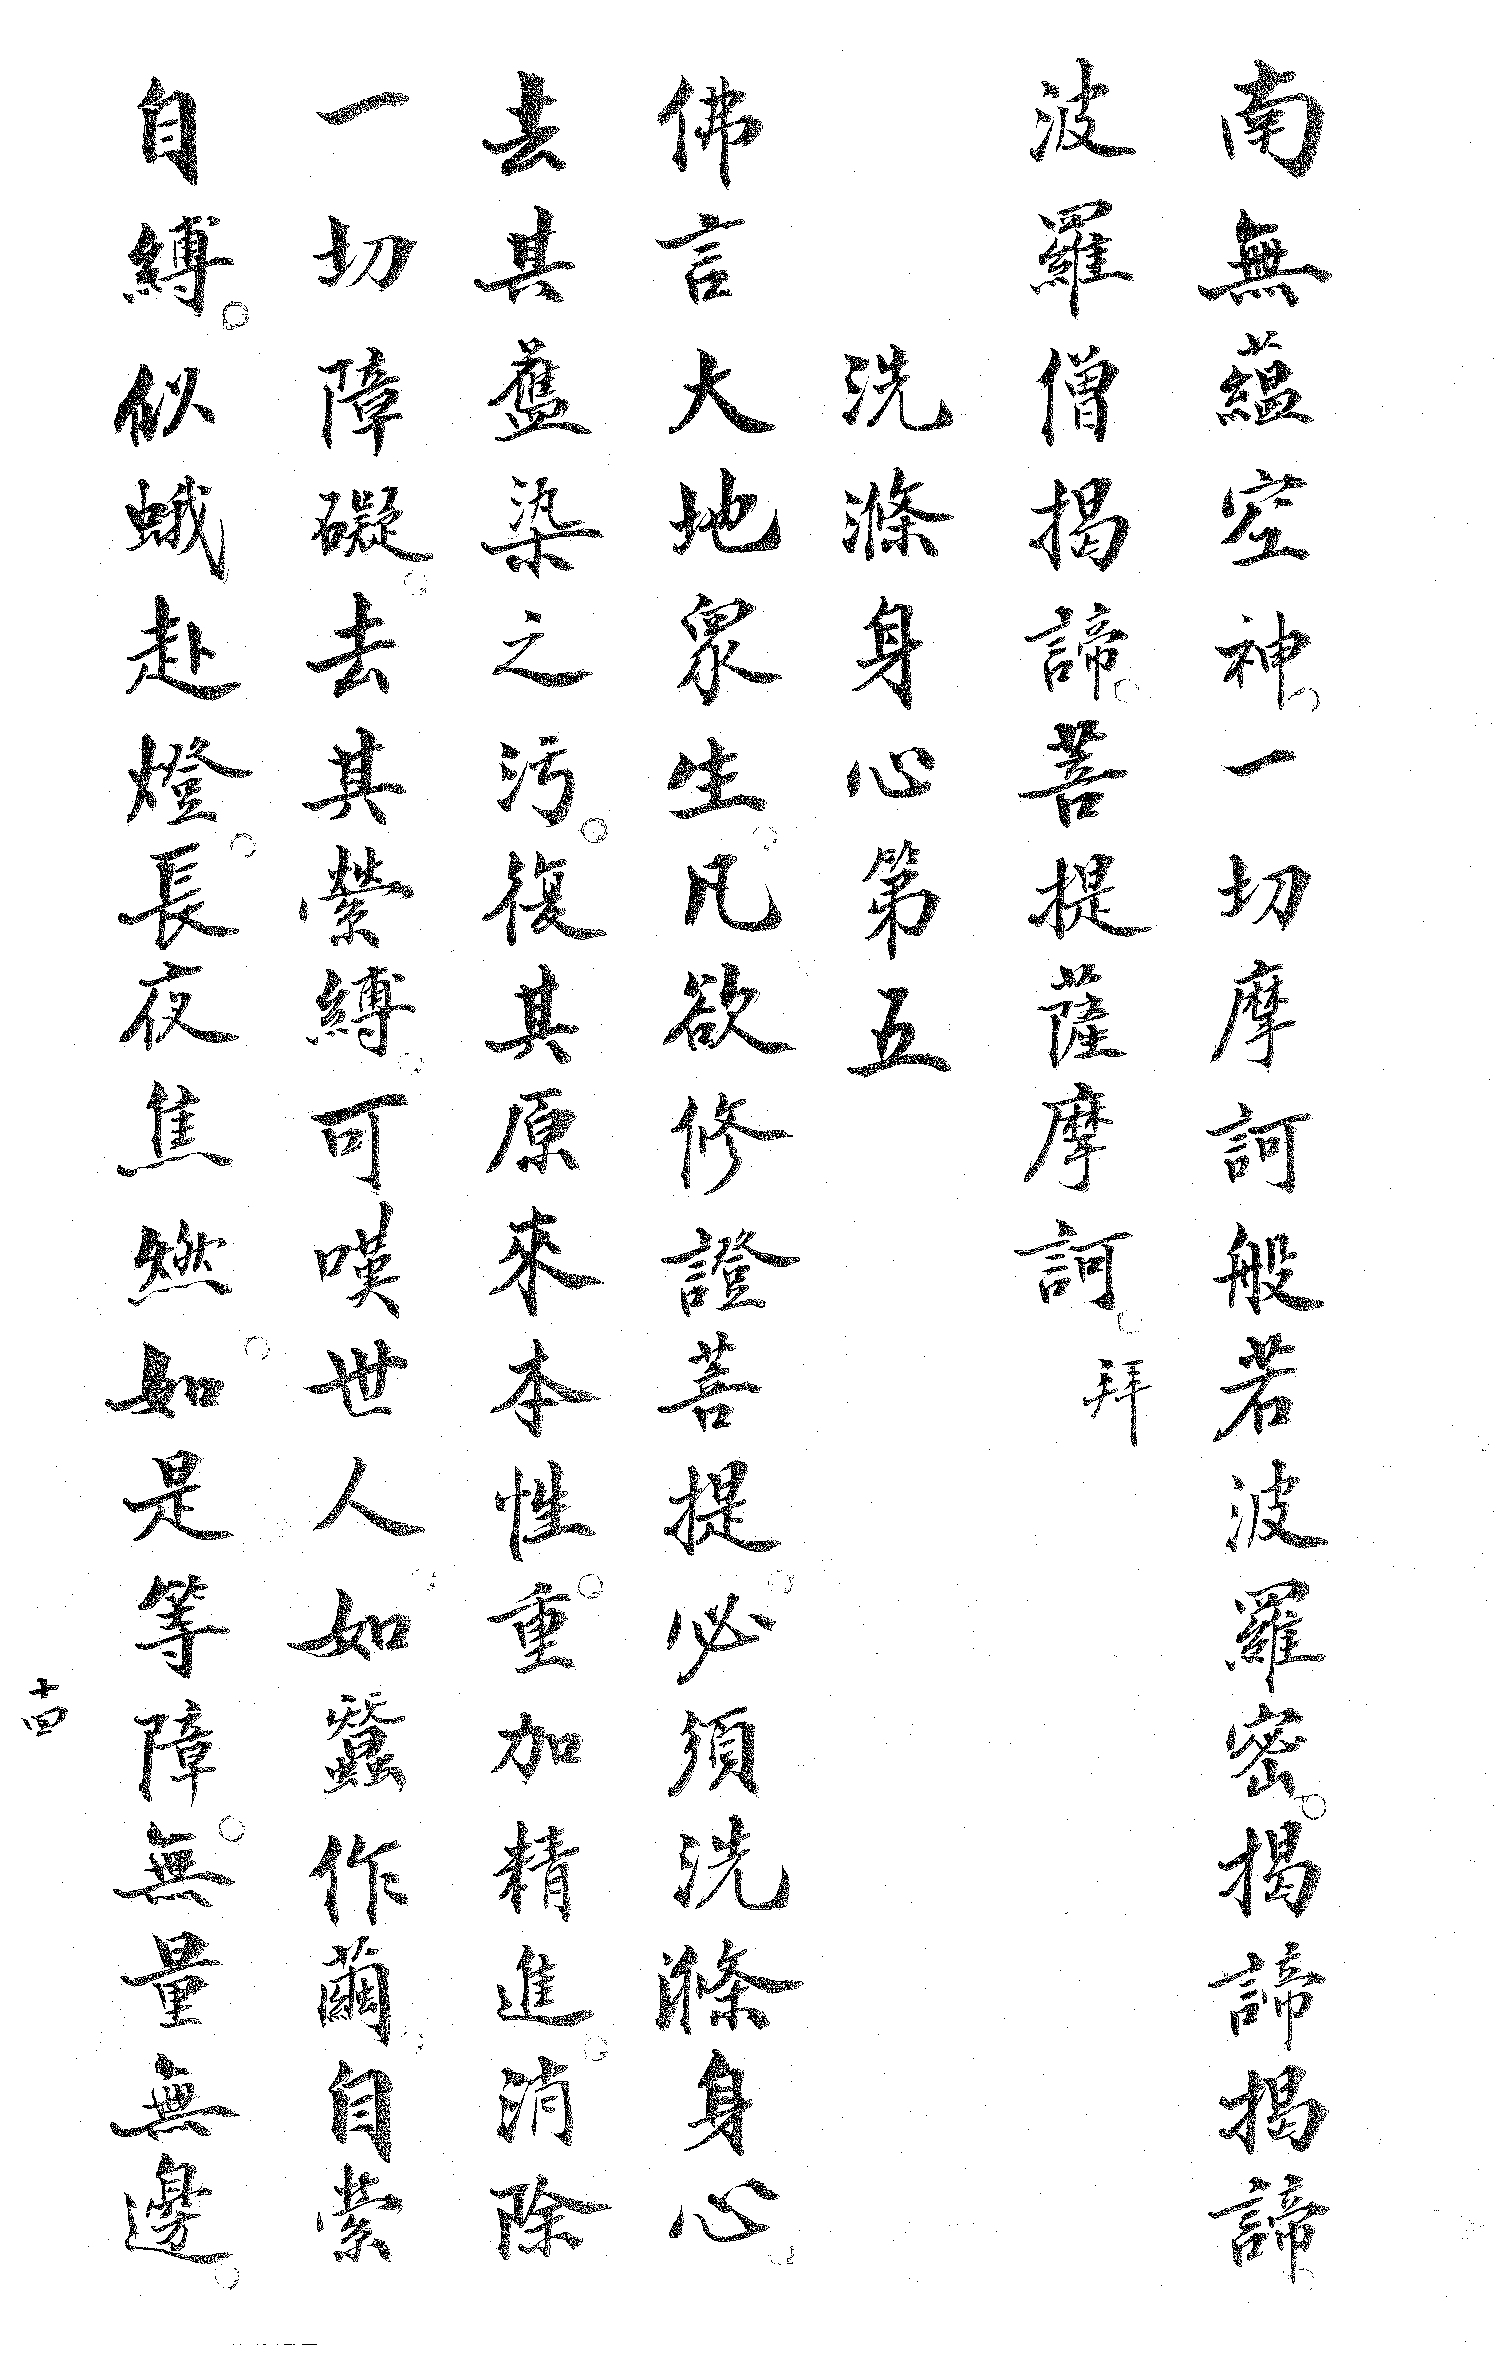 南無蘊空神。一切摩訶般若波羅密。揭諦揭諦。
波羅僧揭諦。菩提薩摩訶。拜
洗滌身心第五
佛言大地眾生。凡欲修證菩提。必須洗滌身心。
去其舊染之污。復其原來本性。重加精進。消除
一切障礙。去其縈縛。可嘆世人。如蠶作繭。自縈
自縛。似蛾赴燈。長夜焦燃。如是等障。無量無邊。
十四